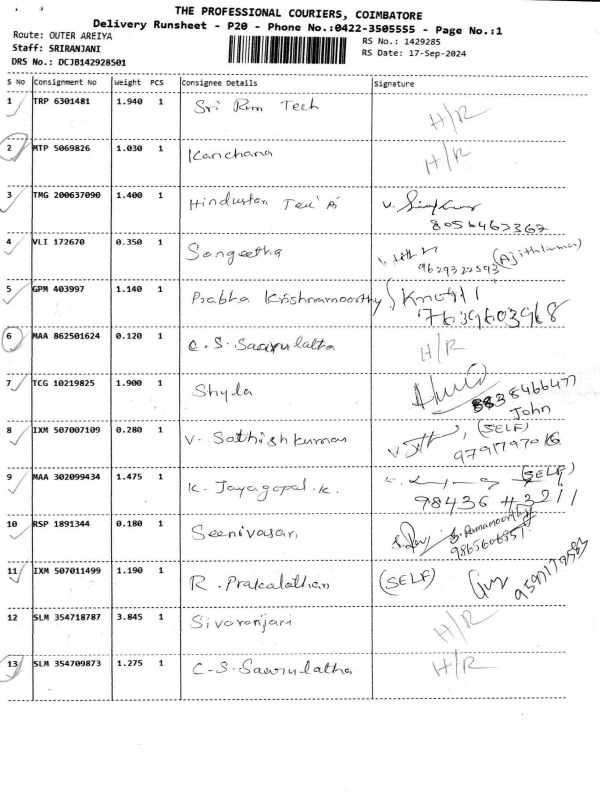 THE PROFESSIONAL COURIERS, COIMBATORE
Delivery Runsheet - P20 - Phone No.:0422-3505555 - Page No.:1
Route: OUTER AREIYA
RS No.: 1429285
Staff: SRIRANJANI
RS Date: 17-Sep-2024
DRS No.: DCJB142928501
S No Consignment No Weight PCS Consignee Details Signature
1 TRP 6301481 1.940 1 Sri Ram Tech H/R
2 MTP 5069826 1.030 1 Kanchana H/R
3 TMG 200637090 1.400 1 Hindustan
8056463362
4 VLI 172670 0.350 1 Sangeetha
9629322593 (Ajithkumar)
5 GPM 403997 1.140 1 Prabha Krishnamoorthy
7639603968
6 MAA 862501624 0.120 1 C.S. H/R
7 TCG 10219825 1.900 1 Shyla
8838466477
John
8 IXM 507007109 0.280 1 V. Sathishkumar (SELF)
9791797016
9 MAA 302099434 1.475 1 K. Jayagopal.K. (SELF)
98436 43211
10 RSP 1891344 0.180 1 Seenivasan S. Ramamoorthy
9865606857
11 IXM 507011499 1.190 1 R. Prakalathan (SELF)
12 SLM 354718787 3.845 1 Sivaranjani H/R
13 SLM 354709873 1.275 1 C.S. H/R